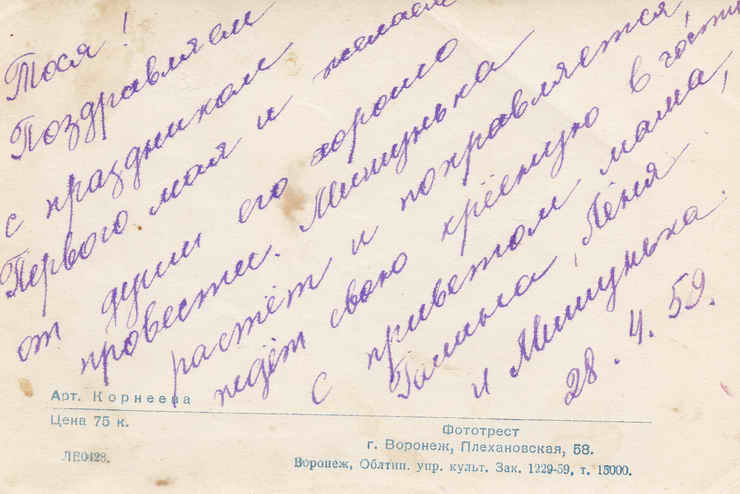 Тося!
Поздравляем
с праздником
Первого мая и желаем
от души его хорошо
провести. Мишунька
растёт и поправляется,
ждёт свою крёсную в гости
с приветом мама,
Галина, Лёня
и Мишунька.
28.4.59.
Арт. Корнеева
Цена 75 к.
ЛЕ0428.
Фототрест
г. Воронеж, Плехановская, 58.
Воронеж, Облтип. упр. культ. Зак. 1229-59, т. 15000.